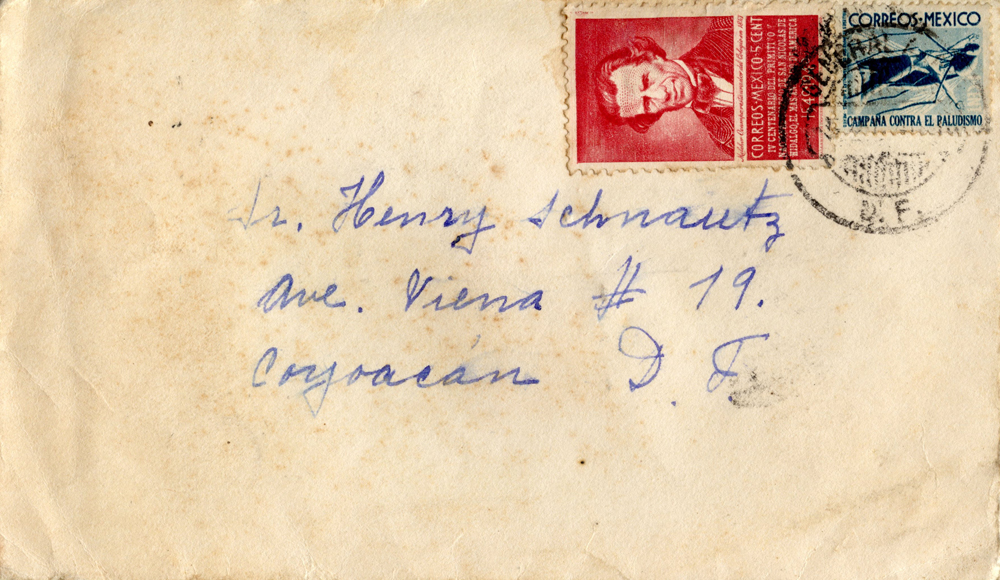 CORREOS-MEXICO
CAMPAÑA CONTRA EL PALUDISMO
CORREOS-MEXICO-5 CENT
IV CENTENARIO DEL PRIMITIVO Y
NACIONAL COLEGIO DE SAN NICOLAS DE
HIDALGO, EL MAS ANTIGUO DE AMERICA
1540
D. F.
Sr. Henry Schnautz
Ave. Viena # 19.
Coyoacán D. F.